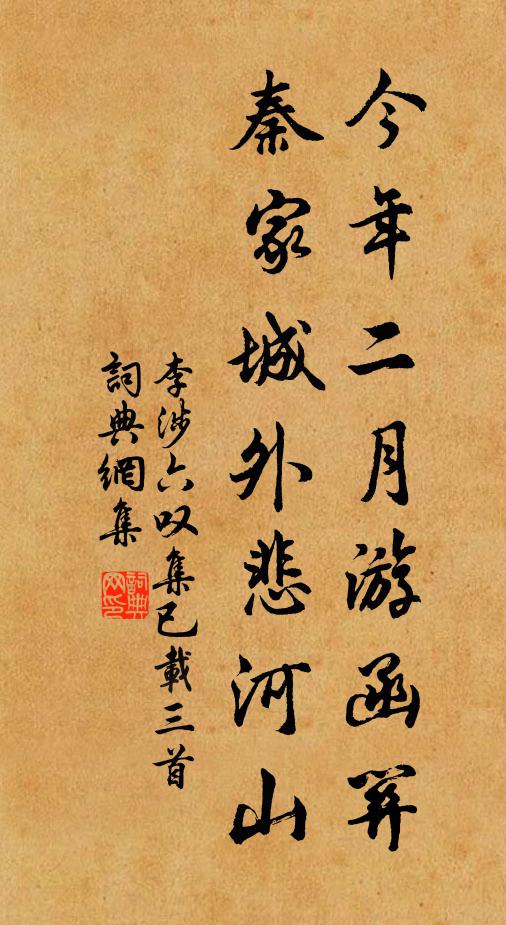 今年二月游函関
秦家城外悲河山
李涉六叹集已載三首
詞典網集
詞典网印